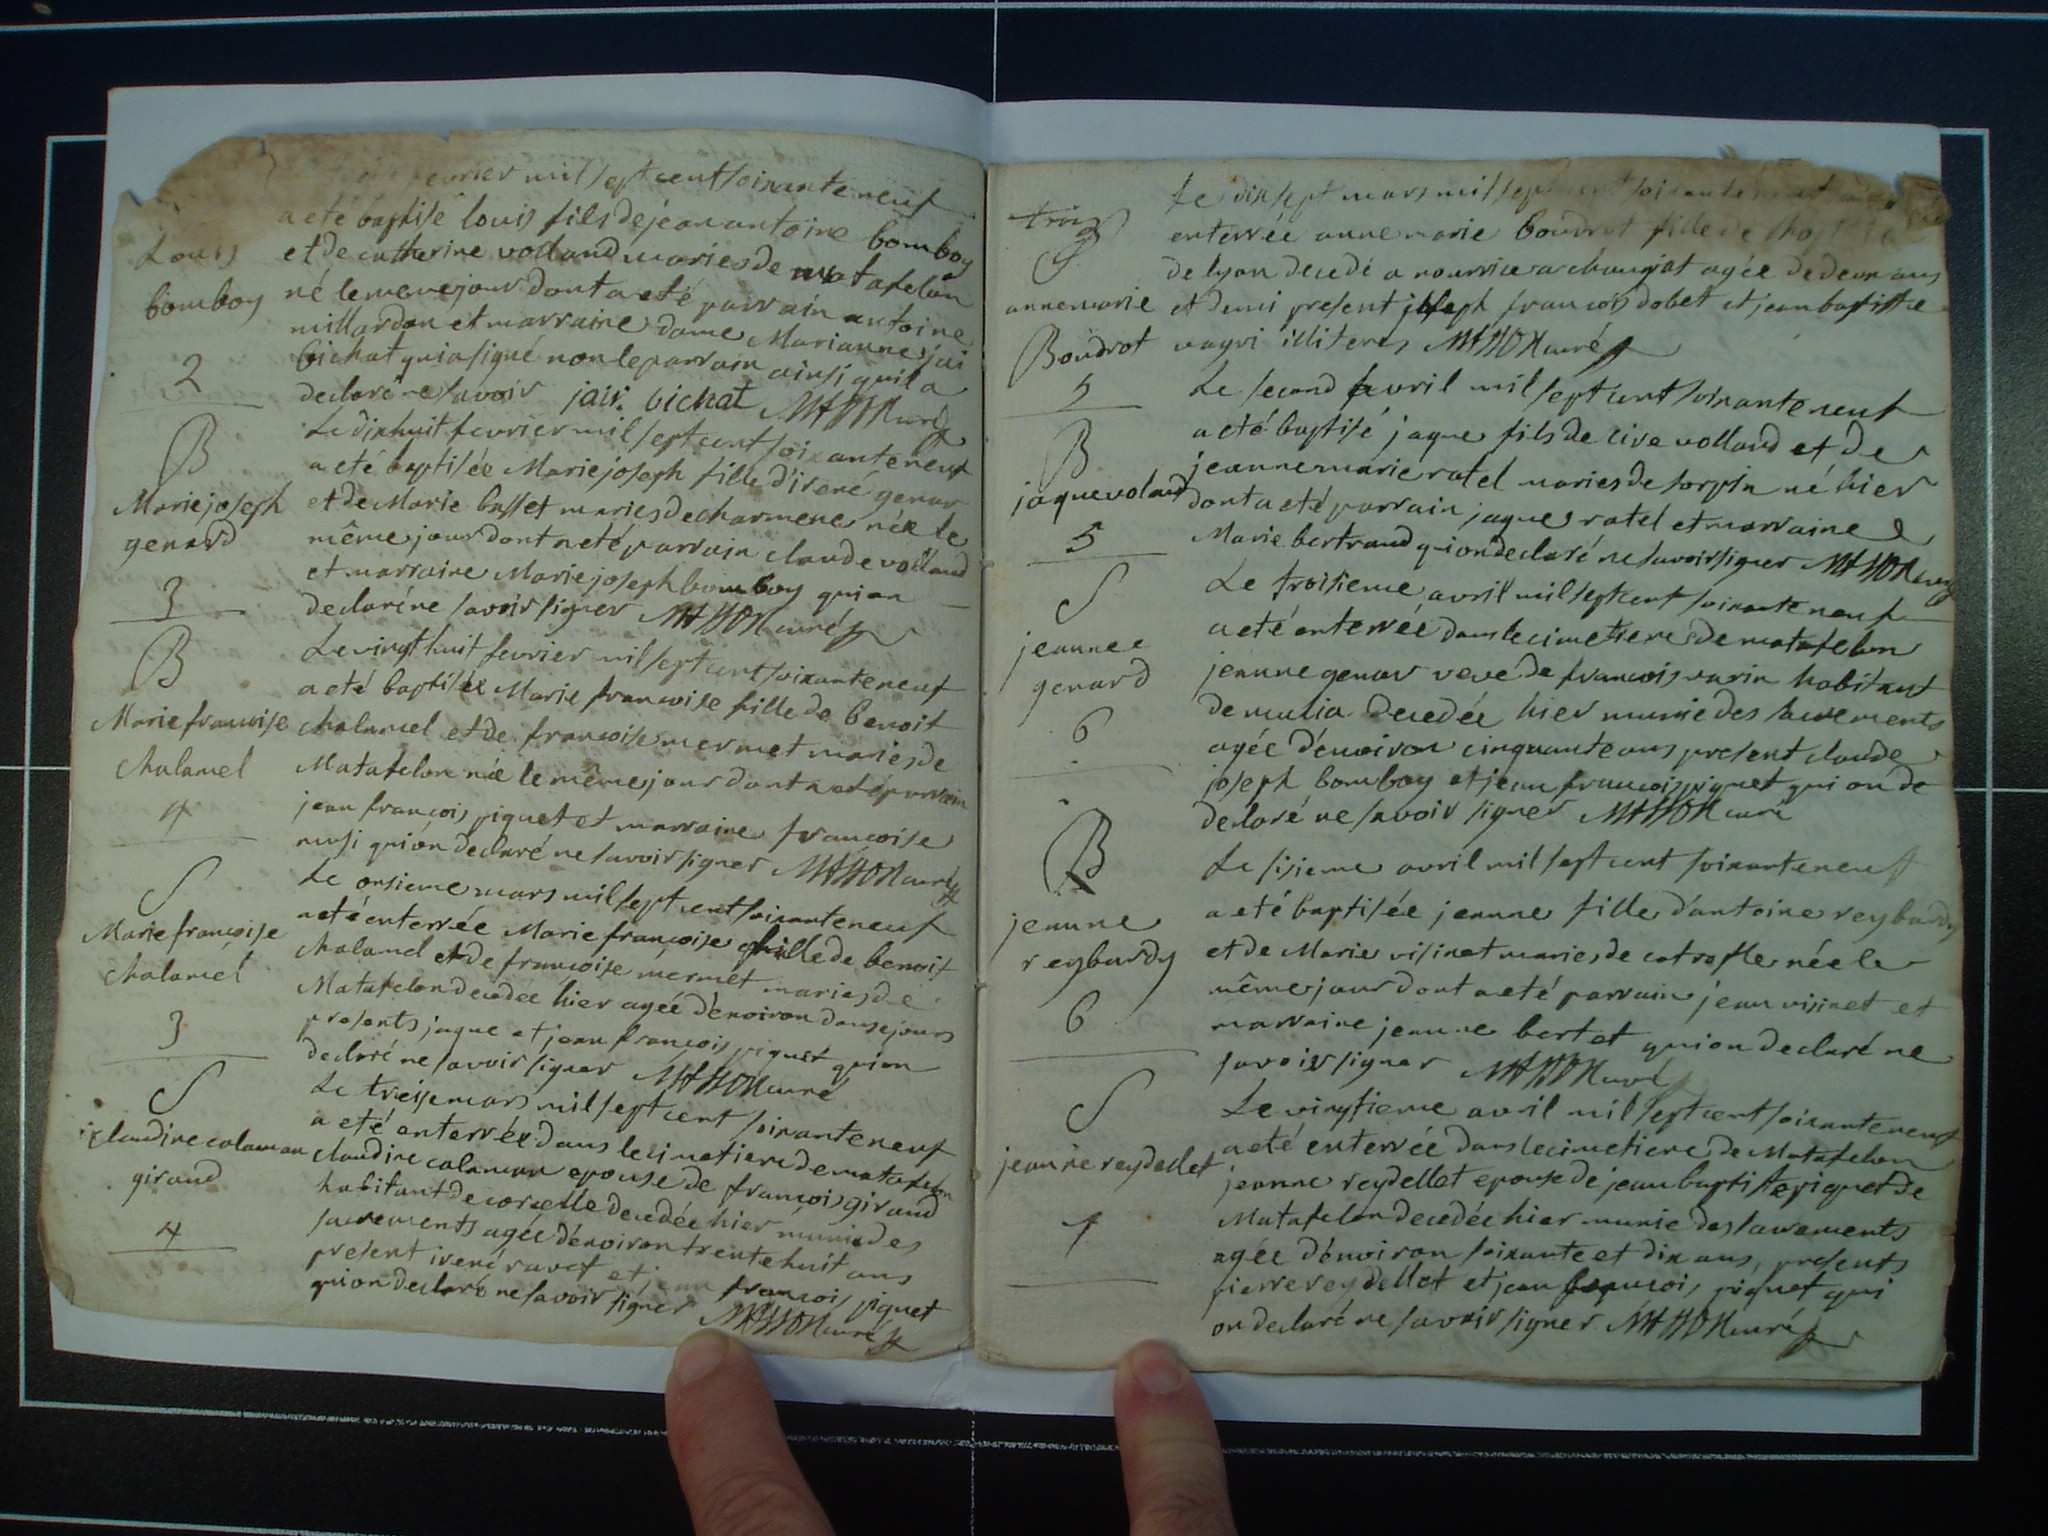 fevrier mil sept cent soixante neuf
a eté baptisé louis fils de jean antoine bomboy
Louis
et de catherine volland maries de matafelon
bomboy
né le meme jour dont a eté parrain antoine
millardon et marraine dame Marianne jai
2
bichat qui a signé non le parrain ainsi quil a
declaré ne savoir jaii. bichat MATHON curé
B
Le dixhuit fevrier mil sept cent soixante neuf
a eté baptisée Marie joseph fille d'irené genar
Marie joseph
et de Marie busset maries de charmene née le
genard
même jour dont a eté parrain claude volland
et marraine Marie joseph bomboy qui on
3
declaré ne savoir signer MATHON curé
B
Le vingt huit fevrier mil sept cent soixante neuf
a eté baptisée Marie francoise fille de benoit
Marie francoise
chalamel et de francoise mermet maries de
chalamel
Matafelon née le même jour dont a eté parrain
4
jean francois piquet et marraine francoise
qui on declaré ne savoir signer MATHON curé
S
Le onsieme mars mil sept cent soixante neuf
a eté enterrée Marie francoise fille de benoit
Marie francoise
chalamel et de francoise mermet maries de
chalamel
Matafelon decedée hier agée d'enoiron douse jours
3
presents jaque et jean francois piquet qui on
declaré ne savoir signer MATHON curé
S
Le treise mars mil sept cent soixante neuf
a eté enterrée dans le cimetiere de matafelon
claudine calaman
claudine calaman epouse de francois giraud
giraud
habitant de corcelle decedée hier munie des
4
sacrements agée d'enoiron trente huit ans
present irené ravet et jean francois piquet
qui on declaré ne savoir signer MATHON curé
Le dixsept mars mil sept cent soixante neuf a eté
S
enterrée anne marie boudrot fille de
de lyon decedé a nourrice a chaugiat agée de deux ans
anne marie
et demi present joseph francois dobet et jean baptiste
Boudrot
vagri illiteres MATHON curé
5
Le second avril mil sept cent soixante neuf
B
a eté baptisé jaque fils de cire volland et de
jeanne marie ratel maries de sorpin né hier
jaque voland
dont a eté parrain jaque ratel et marraine
5
Marie bertrand qui on declaré ne savoir signer MATHON curé
S
Le troisieme avril mil sept cent soixante neuf
a eté enterrée dans le cimetiere de matafelon
jeanne
jeanne genar veve de francois varin habitant
genard
de mulia decedée hier munie des sacrements
6
agée d'enoiron cinquante ans present claude
joseph bomboy et jean francois piquet qui on de
declaré ne savoir signer MATHON curé
B
Le sisieme avril mil sept cent soixante neuf
a eté baptisée jeanne fille d'antoine reybardy
jeanne
et de Marie visinet maries de cotrofle née le
reybardy
même jour dont a eté parrain jean visinet et
6
marraine jeanne bertet qui on declaré ne
savoir signer MATHON curé
S
Le vingtieme avril mil sept cent soixante neuf
a eté enterrée dans le cimetiere de Matafelon
jeanne reydellet
jeanne reydellet epouse de jean baptiste piquet de
Matafelon decedée hier munie des sacrements
7
agée d'enoiron soixante et dix ans, presents
pierre reydellet et jean francois piquet qui
on declaré ne savoir signer MATHON curé